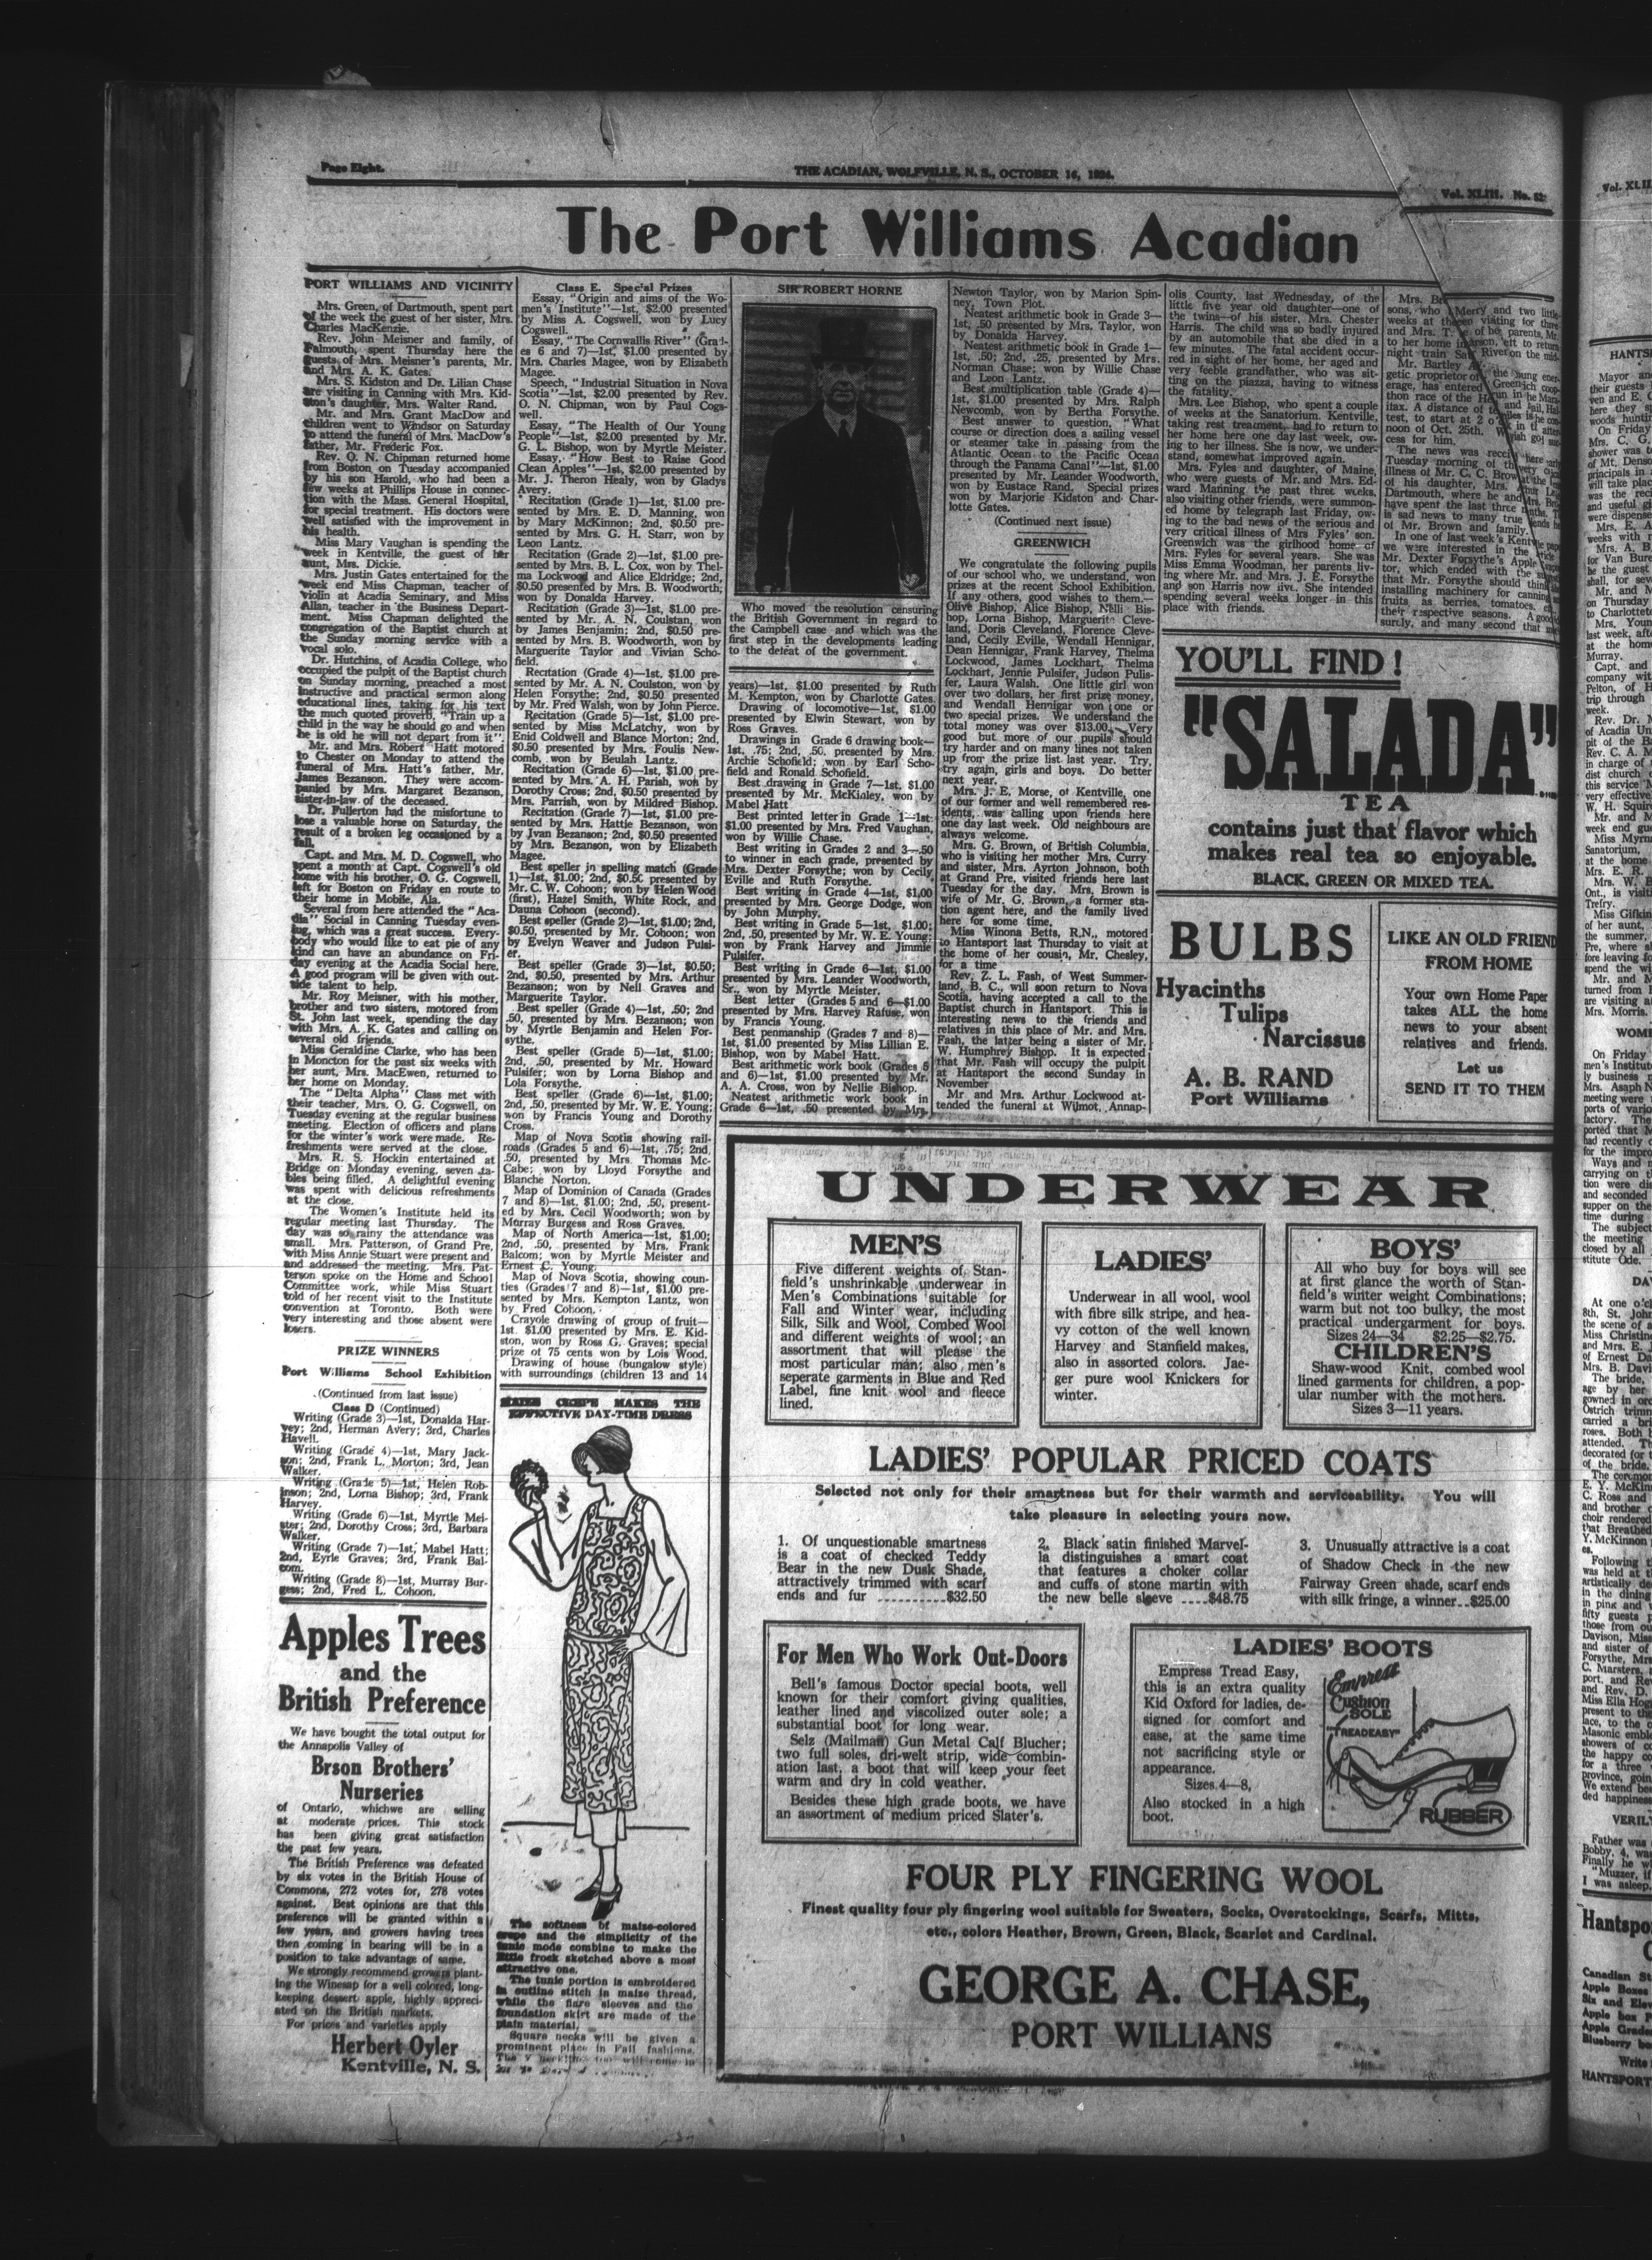 Page Eight.
THE ACADIAN, WOLFVILLE, N. S., OCTOBER 16, 1924.
Vol. XLIII. No. 52
The Port Williams Acadian
PORT WILLIAMS AND VICINITY
Mrs. Green, of Dartmouth, spent part
of the week the guest of her sister, Mrs.
Charles MacKenzie.
Rev. John Meisner and family, of
Falmouth, spent Thursday here the
guests of Mrs. Meisner's parents, Mr.
and Mrs. A. K. Gates.
Mrs. S. Kidston and Dr. Lilian Chase
are visiting in Canning with Mrs. Kid-
ston's daughter, Mrs. Walter Rand.
Mr. and Mrs. Grant MacDow and
children went to Windsor on Saturday
to attend the funeral of Mrs. MacDow's
father, Mr. Frederic Fox.
Rev. O. N. Chipman returned home
from Boston on Tuesday accompanied
by his son Harold, who had been a
few weeks at Phillips House in connec-
tion with the Mass. General Hospital,
for special treatment. His doctors were
well satisfied with the improvement in
his health.
Miss Mary Vaughan is spending the
week in Kentville, the guest of her
aunt, Mrs. Dickie.
Mrs. Justin Gates entertained for the
week end Miss Chapman, teacher of
violin at Acadia Seminary, and Miss
Allan, teacher in the Business Depart-
ment. Miss Chapman delighted the
congregation of the Baptist church at
the Sunday morning service with a
vocal solo.
Dr. Hutchins, of Acadia College, who
occupied the pulpit of the Baptist church
on Sunday morning, preached a most
instructive and practical sermon along
educational lines, taking for his text
the much quoted proverb, "Train up a
child in the way he should go and when
he is old he will not depart from it".
Mr. and Mrs. Robert Hatt motored
to Chester on Monday to attend the
funeral of Mrs. Hatt's father, Mr.
James Bezanson. They were accom-
panied by Mrs. Margaret Bezanson,
sister-in-law of the deceased.
Dr. Fullerton had the misfortune to
lose a valuable horse on Saturday, the
result of a broken leg occasioned by a
fall.
Capt. and Mrs. M. D. Cogswell, who
spent a month at Capt. Cogswell's old
home with his brother, O. G. Cogswell,
left for Boston on Friday en route to
their home in Mobile, Ala.
Several from here attended the "Aca-
dia" Social in Canning Tuesday even-
ing, which was a great success. Every-
body who would like to eat pie of any
kind can have an abundance on Fri-
day evening at the Acadia Social here.
A good program will be given with out-
side talent to help.
Mr. Roy Meisner, with his mother,
brother and two sisters, motored from
St. John last week, spending the day
with Mrs. A. K. Gates and calling on
several old friends.
Miss Geraldine Clarke, who has been
in Moncton for the past six weeks with
her aunt, Mrs. MacEwen, returned to
her home on Monday.
The "Delta Alpha" Class met with
their teacher, Mrs. O. G. Cogswell, on
Tuesday evening at the regular business
meeting. Election of officers and plans
for the winter's work were made. Re-
freshments were served at the close.
Mrs. R. S. Hockin entertained at
Bridge on Monday evening, seven ta-
bles being filled. A delightful evening
was spent with delicious refreshments
at the close.
The Women's Institute held its
regular meeting last Thursday. The
day was so rainy the attendance was
small. Mrs. Patterson, of Grand Pre,
with Miss Annie Stuart were present and
and addressed the meeting. Mrs. Pat-
terson spoke on the Home and School
Committee work, while Miss Stuart
told of her recent visit to the Institute
convention at Toronto. Both were
very interesting and those absent were
losers.
PRIZE WINNERS
Port Williams School Exhibition
(Continued from last issue)
Class D (Continued)
Writing (Grade 3)—1st, Donalda Har-
vey; 2nd, Herman Avery; 3rd, Charles
Havell.
Writing (Grade 4)—1st, Mary Jack-
son; 2nd, Frank L. Morton; 3rd, Jean
Walker.
Writing (Grade 5)—1st, Helen Rob-
inson; 2nd, Lorna Bishop; 3rd, Frank
Harvey.
Writing (Grade 6)—1st, Myrtle Mei-
ster; 2nd, Dorothy Cross; 3rd, Barbara
Walker.
Writing (Grade 7)—1st, Mabel Hatt;
2nd, Eyrle Graves; 3rd, Frank Bal-
com.
Writing (Grade 8)—1st, Murray Bur-
gess; 2nd, Fred L. Cohoon.
Apples Trees
and the
British Preference
We have bought the total output for
the Annapolis Valley of
Brson Brothers'
Nurseries
of Ontario, whichwe are selling
at moderate prices. This stock
has been giving great satisfaction
the past few years.
The British Preference was defeated
by six votes in the British House of
Commons, 272 votes for, 278 votes
against. Best opinions are that this
preference will be granted within a
few years, and growers having trees
then coming in bearing will be in a
position to take advantage of same.
We strongly recommend growers plant-
ing the Winesap for a well colored, long-
keeping dessert apple, highly appreci-
ated on the British markets.
For prices and varieties apply
Herbert Oyler
Kentville, N. S.
Class E. Special Prizes
Essay, "Origin and aims of the Wo-
men's Institute"—1st, $2.00 presented
by Miss A. Cogswell, won by Lucy
Cogswell.
Essay, "The Cornwallis River" (Grad-
es 6 and 7)—1st, $1.00 presented by
Mrs. Charles Magee, won by Elizabeth
Magee.
Speech, "Industrial Situation in Nova
Scotia"—1st, $2.00 presented by Rev.
O. N. Chipman, won by Paul Cogs-
well.
Essay, "The Health of Our Young
People"—1st, $2.00 presented by Mr.
G. L. Bishop, won by Myrtle Meister.
Essay, "How Best to Raise Good
Clean Apples"—1st, $2.00 presented by
Mr. J. Theron Healy, won by Gladys
Avery.
Recitation (Grade 1)—1st, $1.00 pre-
sented by Mrs. E. D. Manning, won
by Mary McKinnon; 2nd, $0.50 pre-
sented by Mrs. G. H. Starr, won by
Leon Lantz.
Recitation (Grade 2)—1st, $1.00 pre-
sented by Mrs. B. L. Cox, won by Thel-
ma Lockwood and Alice Eldridge; 2nd,
$0.50 presented by Mrs. B. Woodworth;
won by Donalda Harvey.
Recitation (Grade 3)—1st, $1.00 pre-
sented by Mr. A. N. Coulstan, won
by James Benjamin; 2nd, $0.50 pre-
sented by Mrs. B. Woodworth, won by
Marguerite Taylor and Vivian Scho-
field.
Recitation (Grade 4)—1st, $1.00 pre-
sented by Mr. A. N. Coulston, won by
Helen Forsythe; 2nd, $0.50 presented
by Mr. Fred Walsh, won by John Pierce.
Recitation (Grade 5)—1st, $1.00 pre-
sented by Miss McLatchy, won by
Enid Coldwell and Blance Morton; 2nd,
$0.50 presented by Mrs. Foulis New-
comb, won by Beulah Lantz.
Recitation (Grade 6)—1st, $1.00 pre-
sented by Mrs. A. H. Parish, won by
Dorothy Cross; 2nd, $0.50 presented by
Mrs. Parrish, won by Mildred Bishop.
Recitation (Grade 7)—1st, $1.00 pre-
sented by Mrs. Hattie Bezanson, won
by Ivan Bezanson; 2nd, $0.50 presented
by Mrs. Bezanson, won by Elizabeth
Magee.
Best speller in spelling match (Grade
1)—1st, $1.00; 2nd, $0.50 presented by
Mr. C. W. Cohoon; won by Helen Wood
(first), Hazel Smith, White Rock, and
Dauna Cohoon (second).
Best speller (Grade 2)—1st, $1.00; 2nd,
$0.50, presented by Mr. Cohoon; won
by Evelyn Weaver and Judson Pulsi-
er.
Best speller (Grade 3)—1st, $0.50;
2nd, $0.50, presented by Mrs. Arthur
Bezanson; won by Nell Graves and
Marguerite Taylor.
Best speller (Grade 4)—1st, .50; 2nd
.50, presented by Mrs. Bezanson; won
by Myrtle Benjamin and Helen For-
sythe.
Best speller (Grade 5)—1st, $1.00;
2nd, .50, presented by Mr. Howard
Pulsifer; won by Lorna Bishop and
Lola Forsythe.
Best speller (Grade 6)—1st, $1.00;
2nd, .50, presented by Mr. W. E. Young;
won by Francis Young and Dorothy
Cross.
Map of Nova Scotia showing rail-
roads (Grades 5 and 6)—1st, .75; 2nd,
.50, presented by Mrs. Thomas Mc-
Cabe; won by Lloyd Forsythe and
Blanche Norton.
Map of Dominion of Canada (Grades
7 and 8)—1st, $1.00; 2nd, .50, present-
ed by Mrs. Cecil Woodworth; won by
Murray Burgess and Ross Graves.
Map of North America—1st, $1.00;
2nd, .50, presented by Mrs. Frank
Balcom; won by Myrtle Meister and
Ernest C. Young.
Map of Nova Scotia, showing coun-
ties (Grades 7 and 8)—1st, $1.00 pre-
sented by Mrs. Kempton Lantz, won
by Fred Cohoon.
Crayole drawing of group of fruit—
1st. $1.00 presented by Mrs. E. Kid-
ston, won by Ross G. Graves; special
prize of 75 cents won by Lois Wood.
Drawing of house (bungalow style)
with surroundings (children 13 and 14
MAIZE CREPE MAKES THE
EFFECTIVE DAY-TIME DRESS
The softness of maize-colored
crepe and the simplicity of the
tunic mode combine to make the
little frock sketched above a most
attractive one.
The tunic portion is embroidered
in outline stitch in maize thread,
while the flare sleeves and the
foundation skirt are made of the
plain material.
Square necks will be given a
prominent place in Fall fashions.
SIR ROBERT HORNE
Who moved the resolution censuring
the British Government in regard to
the Campbell case and which was the
first step in the developments leading
to the defeat of the government.
years)—1st, $1.00 presented by Ruth
M. Kempton, won by Charlotte Gates.
Drawing of locomotive—1st, $1.00
presented by Elwin Stewart, won by
Ross Graves.
Drawings in Grade 6 drawing book—
1st, .75; 2nd, .50, presented by Mrs.
Archie Schofield; won by Earl Scho-
field and Ronald Schofield.
Best drawing in Grade 7—1st, $1.00
presented by Mr. McKinley, won by
Mabel Hatt
Best printed letter in Grade 1—1st;
$1.00 presented by Mrs. Fred Vaughan,
won by Willie Chase.
Best writing in Grades 2 and 3—.50
to winner in each grade, presented by
Mrs. Dexter Forsythe; won by Cecily
Eville and Ruth Forsythe.
Best writing in Grade 4—1st, $1.00
presented by Mrs. George Dodge, won
by John Murphy.
Best writing in Grade 5—1st, $1.00;
2nd, .50, presented by Mr. W. E. Young;
won by Frank Harvey and Jimmie
Pulsifer.
Best writing in Grade 6—1st, $1.00
presented by Mrs. Leander Woodworth,
Sr., won by Myrtle Meister.
Best letter (Grades 5 and 6—$1.00
presented by Mrs. Harvey Rafuse, won
by Francis Young.
Best penmanship (Grades 7 and 8)—
1st, $1.00 presented by Miss Lillian E.
Bishop, won by Mabel Hatt.
Best arithmetic work book (Grades 5
and 6)—1st, $1.00 presented by Mr.
A. A. Cross, won by Nellie Bishop.
Neatest arithmetic work book in
Grade 6—1st, .50 presented by Mrs.
Newton Taylor, won by Marion Spin-
ney, Town Plot.
Neatest arithmetic book in Grade 3—
1st, .50 presented by Mrs. Taylor, won
by Donalda Harvey.
Neatest arithmetic book in Grade 1—
1st, .50; 2nd, .25, presented by Mrs.
Norman Chase; won by Willie Chase
and Leon Lantz.
Best multiplication table (Grade 4)—
1st, $1.00 presented by Mrs. Ralph
Newcomb, won by Bertha Forsythe.
Best answer to question, "What
course or direction does a sailing vessel
or steamer take in passing from the
Atlantic Ocean to the Pacific Ocean
through the Panama Canal"—1st, $1.00
presented by Mr. Leander Woodworth,
won by Eustace Rand. Special prizes
won by Marjorie Kidston and Char-
lotte Gates.
(Continued next issue)
GREENWICH
We congratulate the following pupils
of our school who, we understand, won
prizes at the recent School Exhibition.
If any others, good wishes to them.—
Olive Bishop, Alice Bishop, Nelli Bis-
hop, Lorna Bishop, Marguerite Cleve-
land, Doris Cleveland, Florence Cleve-
land, Cecily Eville, Wendall Hennigar,
Dean Hennigar, Frank Harvey, Thelma
Lockwood, James Lockhart, Thelma
Lockhart, Jennie Pulsifer, Judson Pulis-
fer, Laura Walsh. One little girl won
over two dollars, her first prize money,
and Wendall Hennigar won one or
two special prizes. We understand the
total money was over $13.00. Very
good but more of our pupils should
try harder and on many lines not taken
up from the prize list last year. Try,
try again, girls and boys. Do better
next year.
Mrs. J. E. Morse, of Kentville, one
of our former and well remembered res-
idents, was calling upon friends here
one day last week. Old neighbours are
always welcome.
Mrs. G. Brown, of British Columbia,
who is visiting her mother Mrs. Curry
and sister, Mrs. Ayrton Johnson, both
at Grand Pre, visited friends here last
Tuesday for the day. Mrs. Brown is
wife of Mr. G. Brown, a former sta-
tion agent here, and the family lived
here for some time.
Miss Winona Betts, R.N., motored
to Hantsport last Thursday to visit at
the home of her cousin, Mr. Chesley,
for a time.
Rev. Z. L. Fash, of West Summer-
land, B. C., will soon return to Nova
Scotia, having accepted a call to the
Baptist church in Hantsport. This is
interesting news to the friends and
relatives in this place of Mr. and Mrs.
Fash, the latter being a sister of Mr.
W. Humphrey Bishop. It is expected
that Mr. Fash will occupy the pulpit
at Hantsport the second Sunday in
November
Mr and Mrs. Arthur Lockwood at-
tended the funeral at Wilmot, Annap-
olis County, last Wednesday, of the
little five year old daughter—one of
the twins—of his sister, Mrs. Chester
Harris. The child was so badly injured
by an automobile that she died in a
few minutes. The fatal accident occur-
red in sight of her home, her aged and
very feeble grandfather, who was sit-
ting on the piazza, having to witness
the fatality.
Mrs. Lee Bishop, who spent a couple
of weeks at the Sanatorium, Kentville,
taking rest treatment, had to return to
her home here one day last week, ow-
ing to her illness. She is now, we under-
stand, somewhat improved again.
Mrs. Fyles and daughter, of Maine,
who were guests of Mr. and Mrs. Ed-
ward Manning the past three weeks,
also visiting other friends, were summon-
ed home by telegraph last Friday, ow-
ing to the bad news of the serious and
very critical illness of Mrs Fyles' son.
Greenwich was the girlhood home of
Mrs. Fyles for several years. She was
Miss Emma Woodman, her parents liv-
ing where Mr. and Mrs. J. E. Forsythe
and son Harris now live. She intended
spending several weeks longer in this
place with friends.
Mrs. Br
sons, who
weeks at the
and Mrs. T.
to her home in
night train Sat
Mr. Bartley A
getic proprietor of
erage, has entered
thon race of the
ifax. A distance of
test, to start at 2 o
noon of Oct. 25th.
cess for him.
The news was recei
Tuesday morning of the
illness of Mr. C. C. Brow
of his daughter, Mrs.
Dartmouth, where he and
have spent the last three
is sad news to many true
of Mr. Brown and family.
In one of last week's Kentville
we were interested in the
Mr. Dexter Forsythe's Apple
tor, which ended with the
that Mr. Forsythe should think
installing machinery for canning
fruits, as berries, tomatoes,
their respective seasons. A good
surely, and many second that
YOU'LL FIND!
"SALADA"
TEA
contains just that flavor which
makes real tea so enjoyable.
BLACK, GREEN OR MIXED TEA.
BULBS
Hyacinths
Tulips
Narcissus
A. B. RAND
Port Williams
LIKE AN OLD FRIEND
FROM HOME
Your own Home Paper
takes ALL the home
news to your absent
relatives and friends.
Let us
SEND IT TO THEM
UNDERWEAR
MEN'S
Five different weights of Stan-
field's unshrinkable underwear in
Men's Combinations suitable for
Fall and Winter wear, including
Silk, Silk and Wool, Combed Wool
and different weights of wool; an
assortment that will please the
most particular man; also men's
seperate garments in Blue and Red
Label, fine knit wool and fleece
lined.
LADIES'
Underwear in all wool, wool
with fibre silk stripe, and hea-
vy cotton of the well known
Harvey and Stanfield makes,
also in assorted colors. Jae-
ger pure wool Knickers for
winter.
BOYS'
All who buy for boys will see
at first glance the worth of Stan-
field's winter weight Combinations;
warm but not too bulky, the most
practical undergarment for boys.
Sizes 24—34 $2.25—$2.75.
CHILDREN'S
Shaw-wood Knit, combed wool
lined garments for children, a pop-
ular number with the mothers.
Sizes 3—11 years.
LADIES' POPULAR PRICED COATS
Selected not only for their smartness but for their warmth and serviceability. You will
take pleasure in selecting yours now.
1. Of unquestionable smartness
is a coat of checked Teddy
Bear in the new Dusk Shade,
attractively trimmed with scarf
ends and fur ..........$32.50
2. Black satin finished Marvel-
la distinguishes a smart coat
that features a choker collar
and cuffs of stone martin with
the new belle sleeve ....$48.75
3. Unusually attractive is a coat
of Shadow Check in the new
Fairway Green shade, scarf ends
with silk fringe, a winner..$25.00
For Men Who Work Out-Doors
Bell's famous Doctor special boots, well
known for their comfort giving qualities,
leather lined and viscolized outer sole; a
substantial boot for long wear.
Selz (Mailman) Gun Metal Calf Blucher;
two full soles, dri-welt strip, wide combin-
ation last, a boot that will keep your feet
warm and dry in cold weather.
Besides these high grade boots, we have
an assortment of medium priced Slater's.
LADIES' BOOTS
Empress Tread Easy,
this is an extra quality
Kid Oxford for ladies, de-
signed for comfort and
ease, at the same time
not sacrificing style or
appearance.
Sizes 4—8,
Also stocked in a high
boot.
Empress
Cushion
SOLE
"TREADEASY"
RUBBER
FOUR PLY FINGERING WOOL
Finest quality four ply fingering wool suitable for Sweaters, Socks, Overstockings, Scarfs, Mitts,
etc., colors Heather, Brown, Green, Black, Scarlet and Cardinal.
GEORGE A. CHASE,
PORT WILLIANS